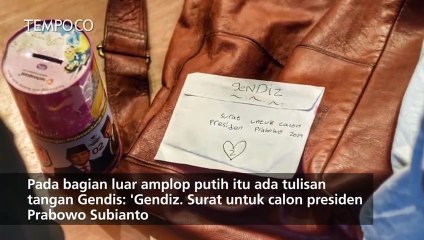 TEMPO.CO
GENDIZ
Surat untuk calon
Presiden Prabowo 2019
02
Pada bagian luar amplop putih itu ada tulisan
tangan Gendis: 'Gendiz. Surat untuk calon presiden
Prabowo Subianto